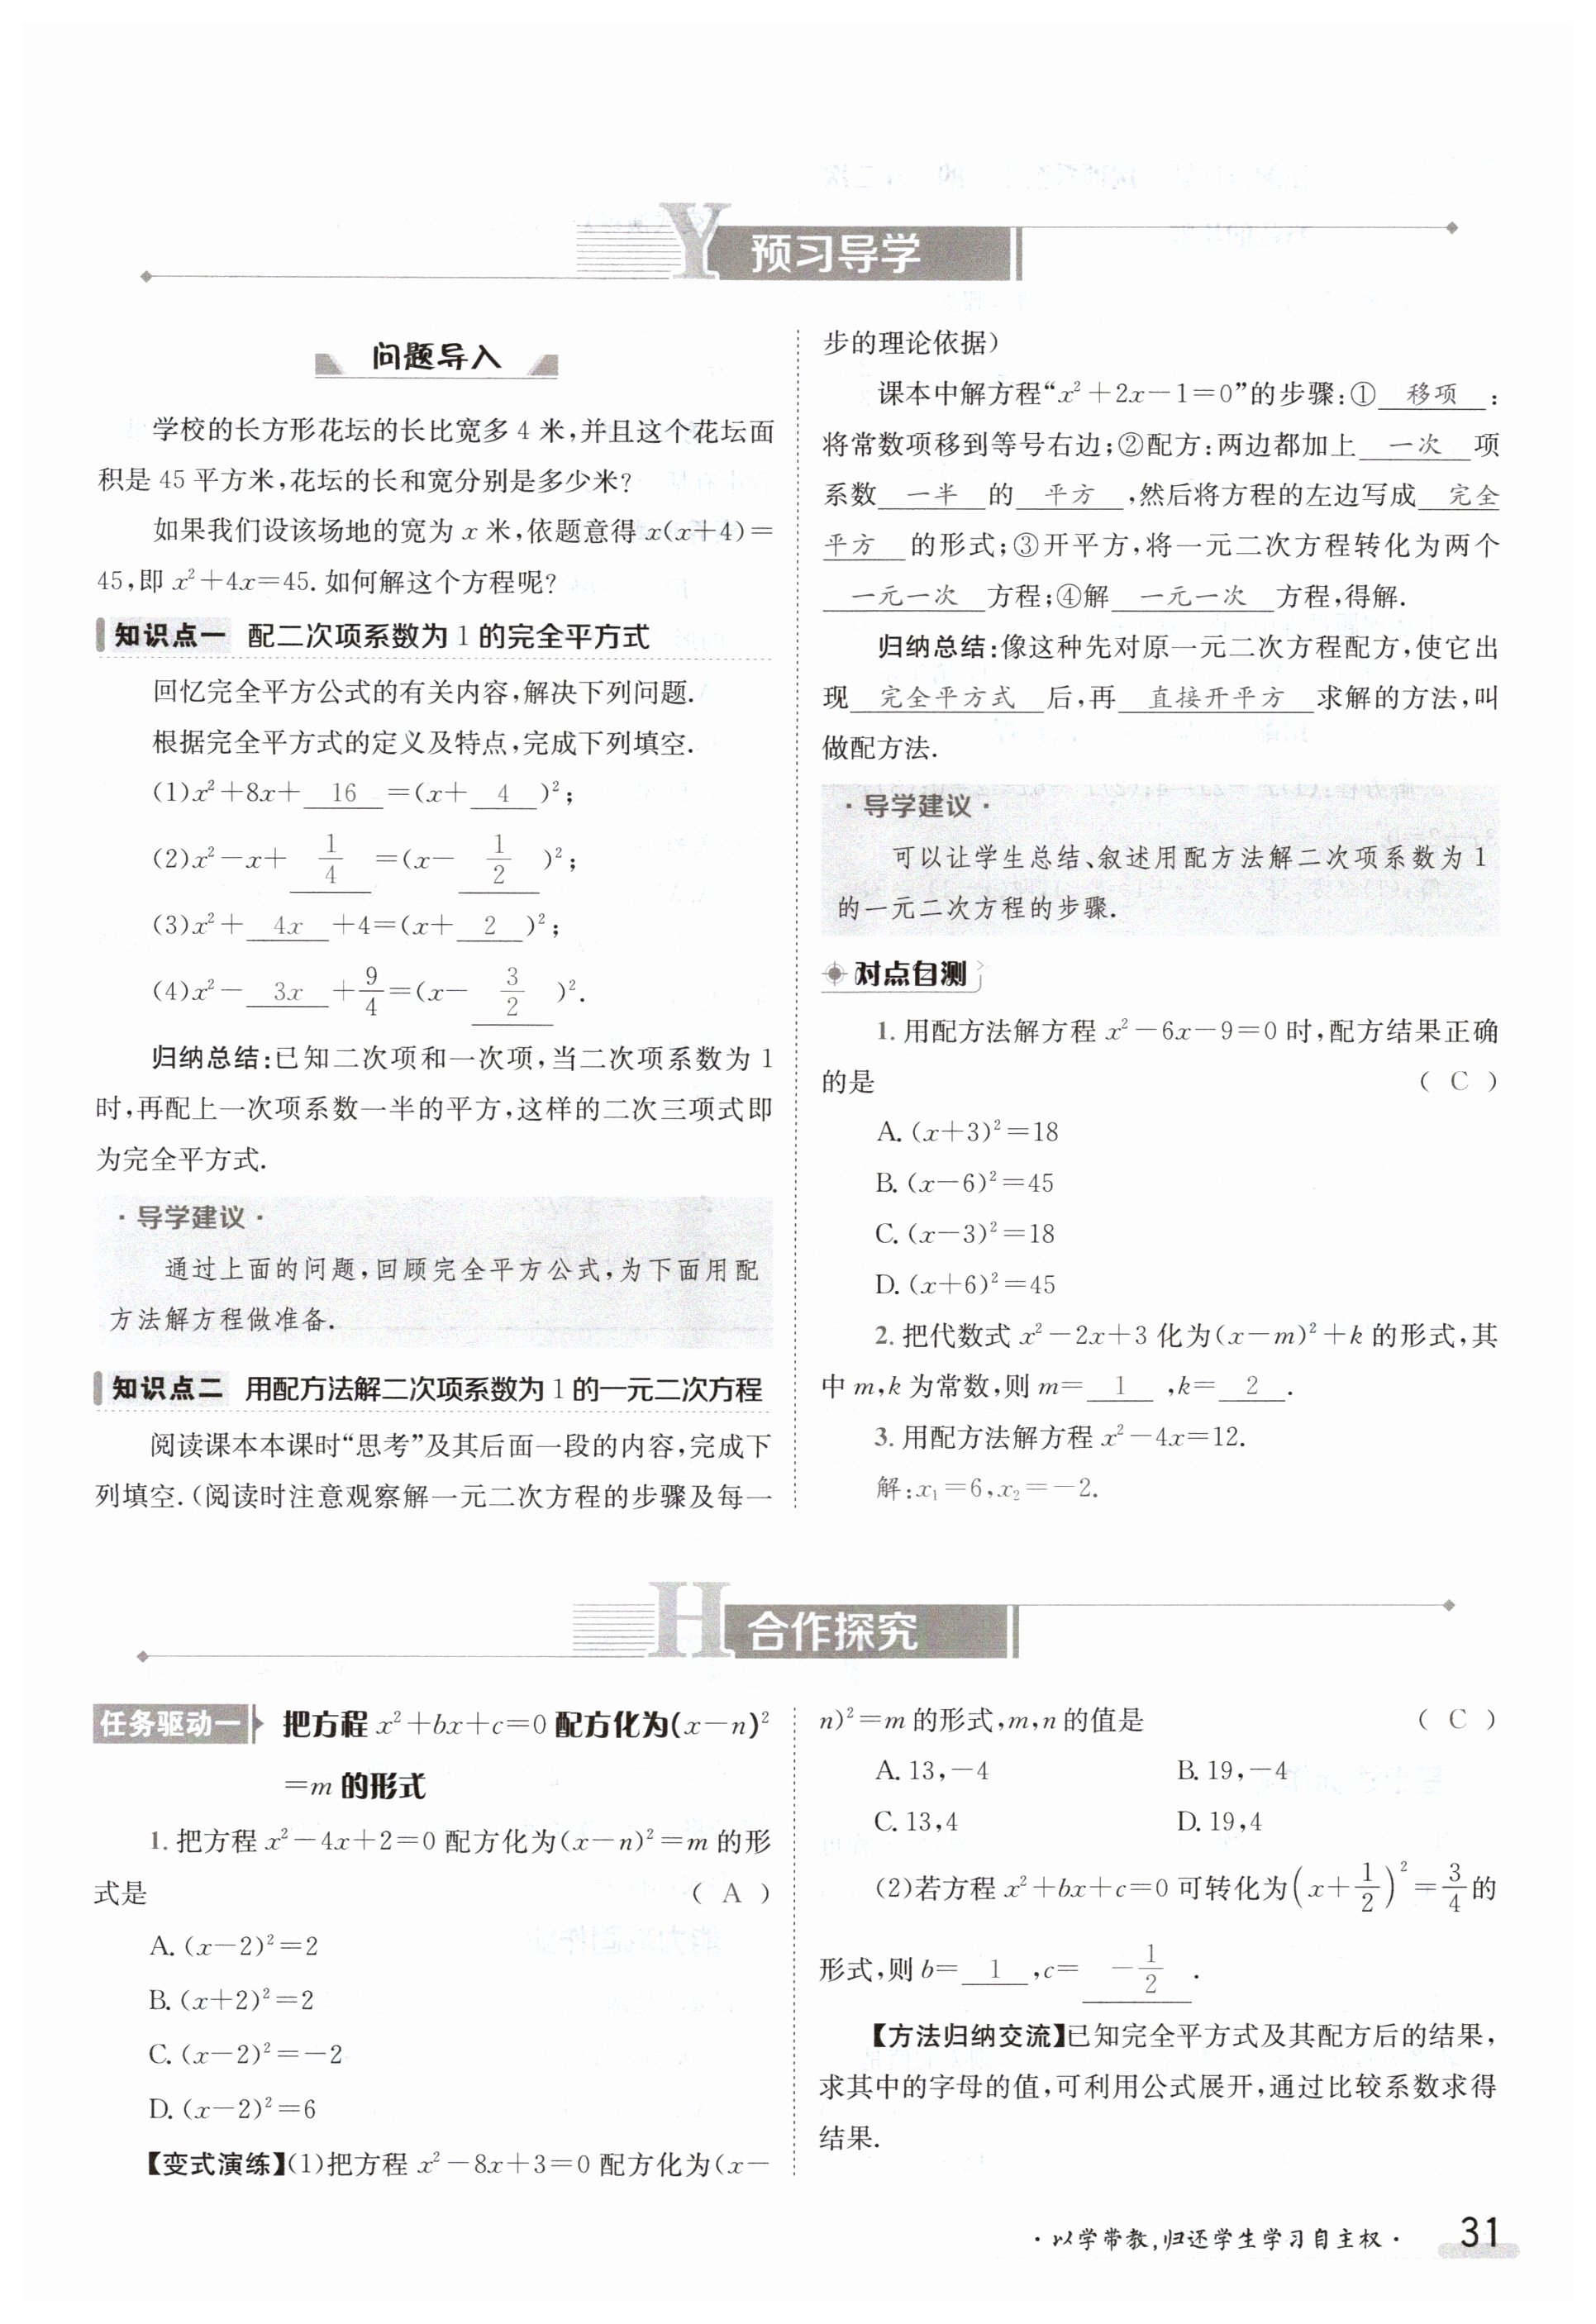 Y 预习导学
问题导入
学校的长方形花坛的长比宽多 4 米,并且这个花坛面
积是 45 平方米,花坛的长和宽分别是多少米?
如果我们设该场地的宽为 x 米,依题意得 x(x+4)=
45,即 x²+4x=45. 如何解这个方程呢?
知识点一 配二次项系数为 1 的完全平方式
回忆完全平方公式的有关内容,解决下列问题.
根据完全平方式的定义及特点,完成下列填空.
(1)x²+8x+ 16 =(x+ 4 )²;
(2)x²-x+ 1/4 =(x- 1/2 )²;
(3)x²+ 4x +4=(x+ 2 )²;
(4)x²- 3x +9/4=(x- 3/2 )².
归纳总结:已知二次项和一次项,当二次项系数为 1
时,再配上一次项系数一半的平方,这样的二次三项式即
为完全平方式.
·导学建议·
通过上面的问题,回顾完全平方公式,为下面用配
方法解方程做准备.
知识点二 用配方法解二次项系数为 1 的一元二次方程
阅读课本本课时“思考”及其后面一段的内容,完成下
列填空.(阅读时注意观察解一元二次方程的步骤及每一
步的理论依据)
课本中解方程“x²+2x-1=0”的步骤:① 移项 :
将常数项移到等号右边;②配方:两边都加上 一次 项
系数 一半 的 平方 ,然后将方程的左边写成 完全
平方 的形式;③开平方,将一元二次方程转化为两个
一元一次 方程;④解 一元一次 方程,得解.
归纳总结:像这种先对原一元二次方程配方,使它出
现 完全平方式 后,再 直接开平方 求解的方法,叫
做配方法.
·导学建议·
可以让学生总结、叙述用配方法解二次项系数为 1
的一元二次方程的步骤.
对点自测
1. 用配方法解方程 x²-6x-9=0 时,配方结果正确
的是 ( C )
A. (x+3)²=18
B. (x-6)²=45
C. (x-3)²=18
D. (x+6)²=45
2. 把代数式 x²-2x+3 化为(x-m)²+k 的形式,其
中 m,k 为常数,则 m= 1 ,k= 2 .
3. 用配方法解方程 x²-4x=12.
解:x₁=6,x₂=-2.
H 合作探究
任务驱动一 把方程 x²+bx+c=0 配方化为(x-n)²
=m 的形式
1. 把方程 x²-4x+2=0 配方化为(x-n)²=m 的形
式是 ( A )
A. (x-2)²=2
B. (x+2)²=2
C. (x-2)²=-2
D. (x-2)²=6
【变式演练】(1)把方程 x²-8x+3=0 配方化为(x-
n)²=m 的形式,m,n 的值是 ( C )
A. 13,-4 B. 19,-4
C. 13,4 D. 19,4
(2)若方程 x²+bx+c=0 可转化为(x+1/2)²=3/4的
形式,则 b= 1 ,c= -1/2 .
【方法归纳交流】已知完全平方式及其配方后的结果,
求其中的字母的值,可利用公式展开,通过比较系数求得
结果.
·以学带教,归还学生学习自主权· 31